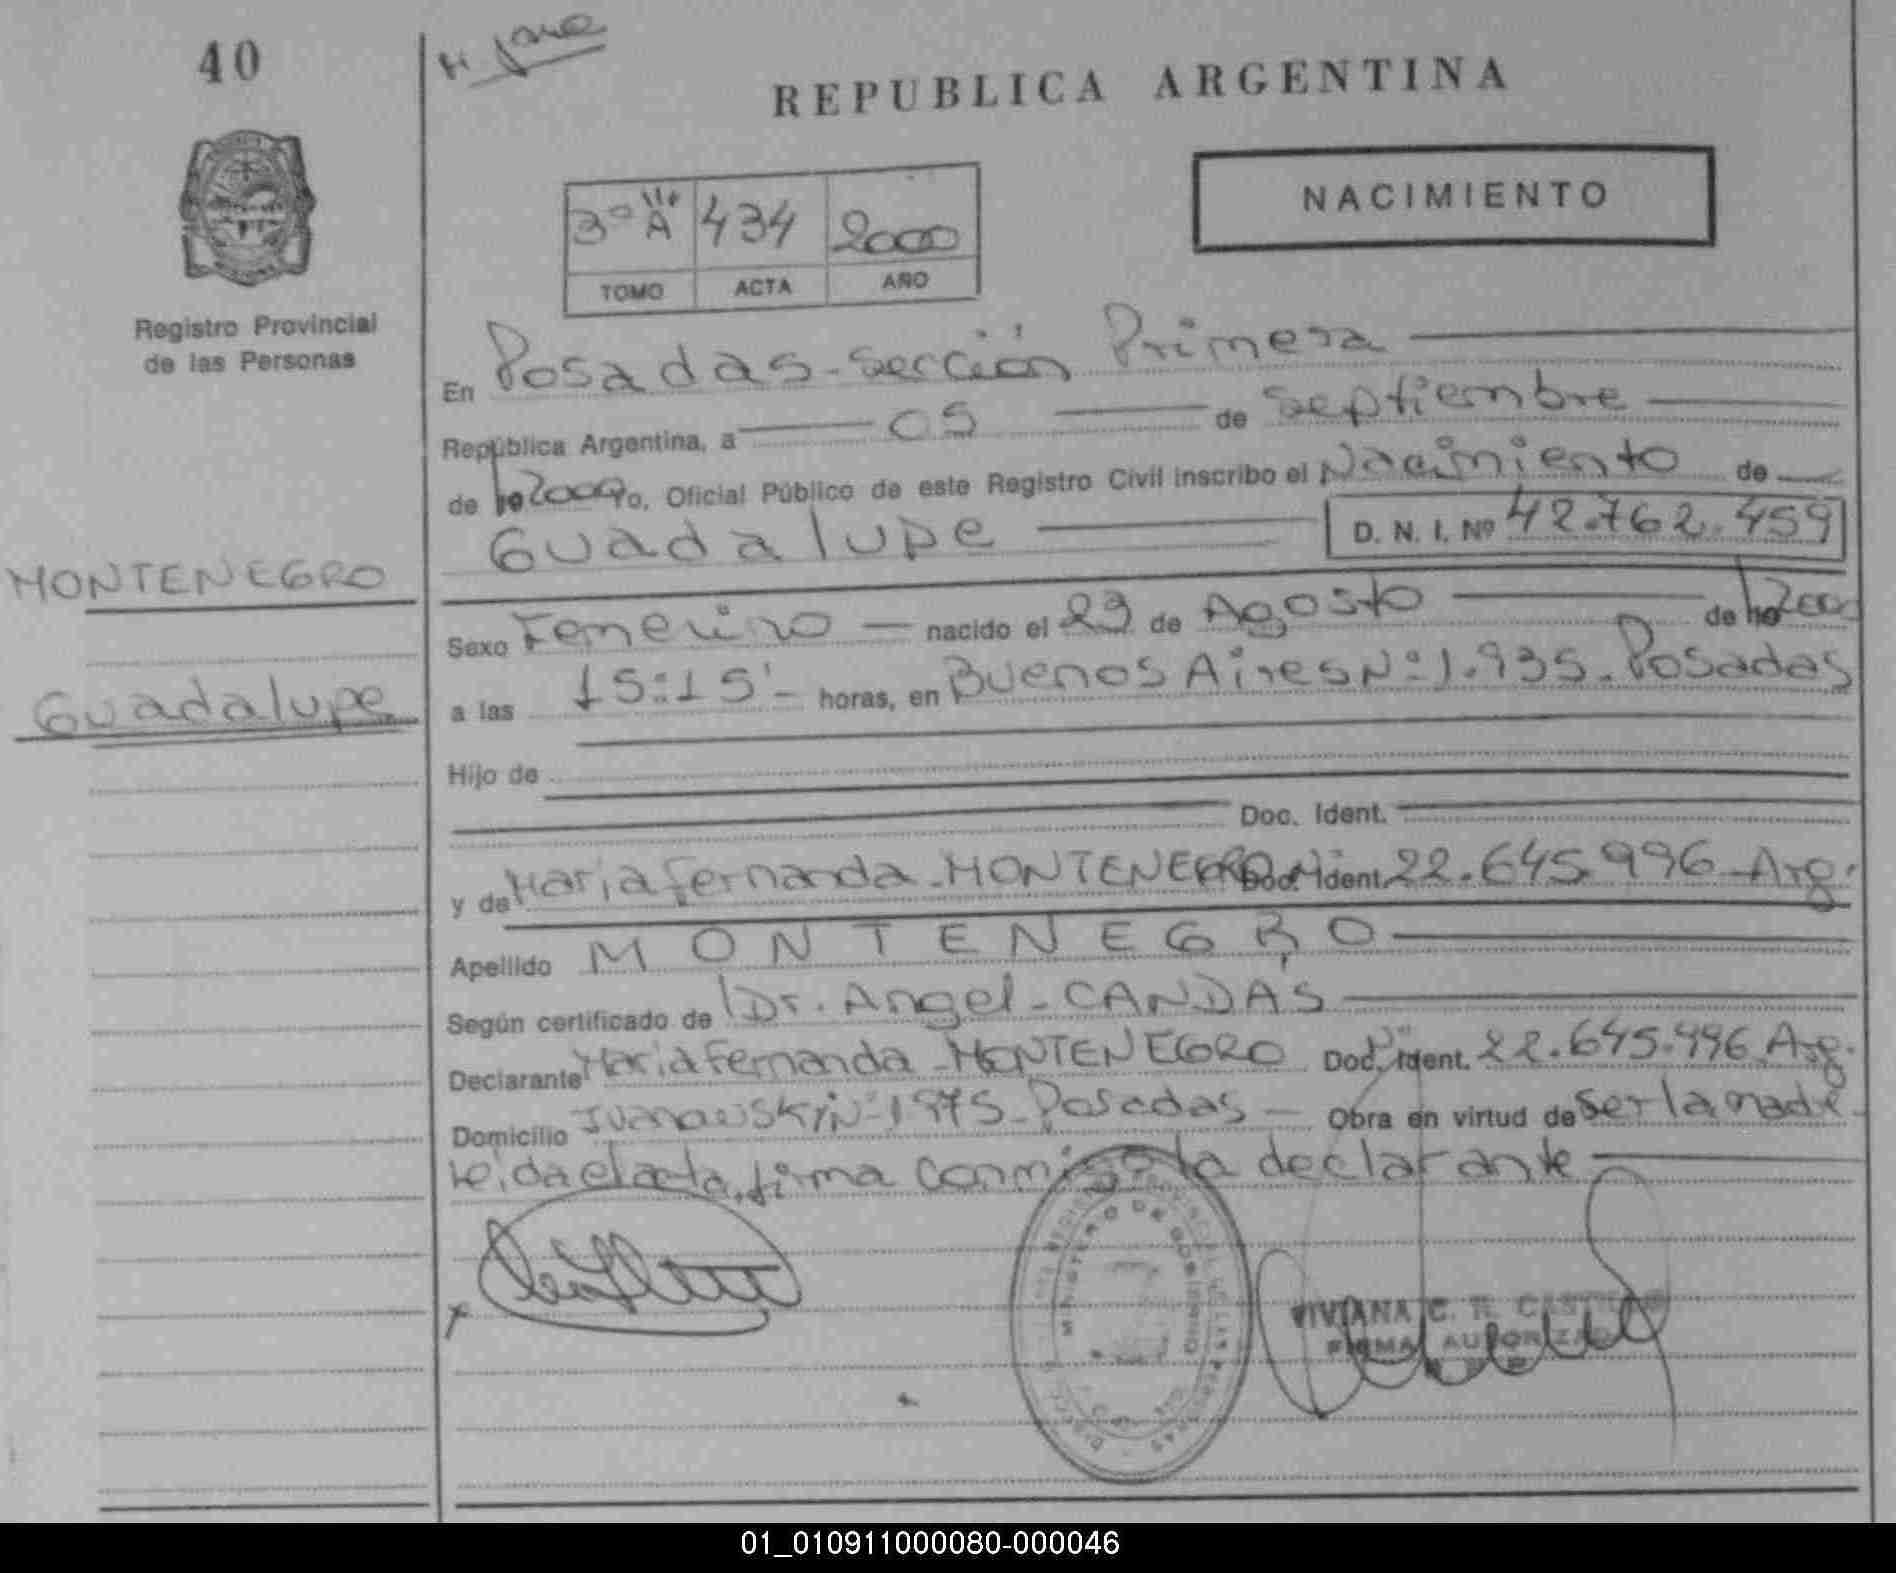 40
REPUBLICA ARGENTINA
NACIMIENTO
3º A 434 2000
TOMO ACTA AÑO
Registro Provincial
de las Personas
En Posadas - Sección Primera
República Argentina, a 05 de Septiembre
de 19 2000 Yo, Oficial Público de este Registro Civil inscribo el Nacimiento de
Guadalupe D. N. I. Nº 42.762.459
MONTENEGRO
Guadalupe
Sexo Femenino nacido el 29 de Agosto de 19 2000
a las 15:15'- horas, en Buenos Aires Nº 1.935 - Posadas
Hijo de
Doc. Ident.
y de María Fernanda - MONTENEGRO Doc. Ident. 22.645.996 - Arg.
Apellido MONTENEGRO
Según certificado de Dr. Angel - CANDAS
Declarante María Fernanda - MONTENEGRO Doc. Ident. 22.645.996 Arg.
Domicilio Nº 1975 - Posadas - Obra en virtud de ser la madre -
leída el acta, firma conmigo la declarante
MINISTERIO DE GOBIERNO
VIVIANA C. R. CASTILLO
FIRMA AUTORIZADA
01_010911000080-000046